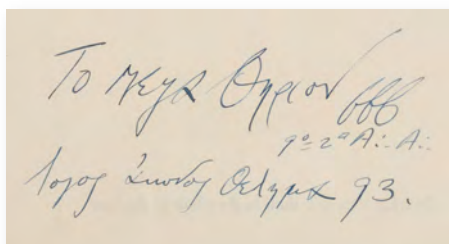 Το Μεγα Θηριον 666
9°=2▫ A∴ A∴
Λογος Αιωνος Θελημα 93.